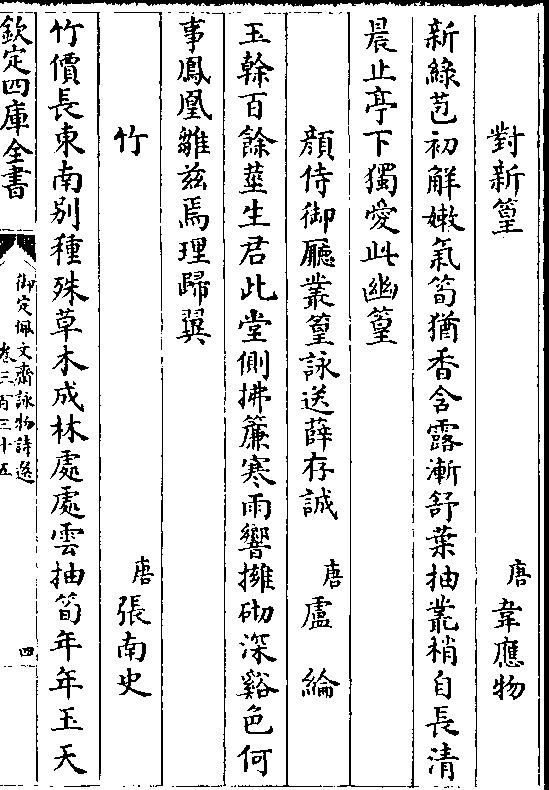 對新篁 唐 韋應物
新綠苞初解嫩氣筍猶香含露漸舒葉抽叢稍自長清
晨止亭下獨愛此幽篁
顔侍御廳叢篁詠送薛存誠 唐 盧綸
玉榦百餘莖生君此堂側拂簾寒雨響擁砌深谿色何
事鳳凰雛兹焉理歸翼
竹 唐 張南史
竹價長東南别種殊草木成林處處雲抽筍年年玉天
欽定四庫全書
御定佩文齋詠物詩選
卷三百三十五
四